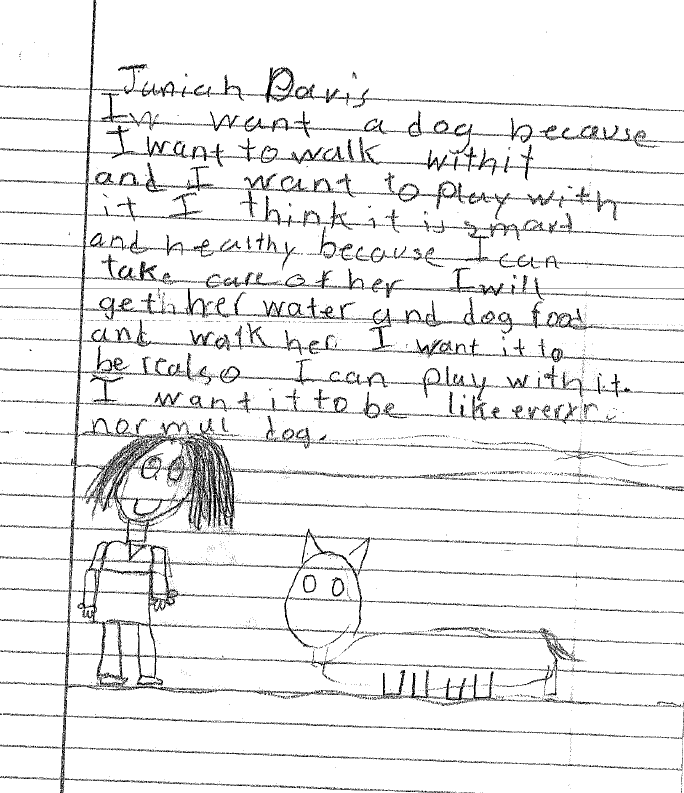 Juniah Davis
Iw want a dog because
I want to walk withit
and I want to play with
it I think it is smart
and healthy because I can
take care of her I will
get hher water and dog food
and walk her I want it to
be real so I can play with it.
I want it to be like
normul dog.